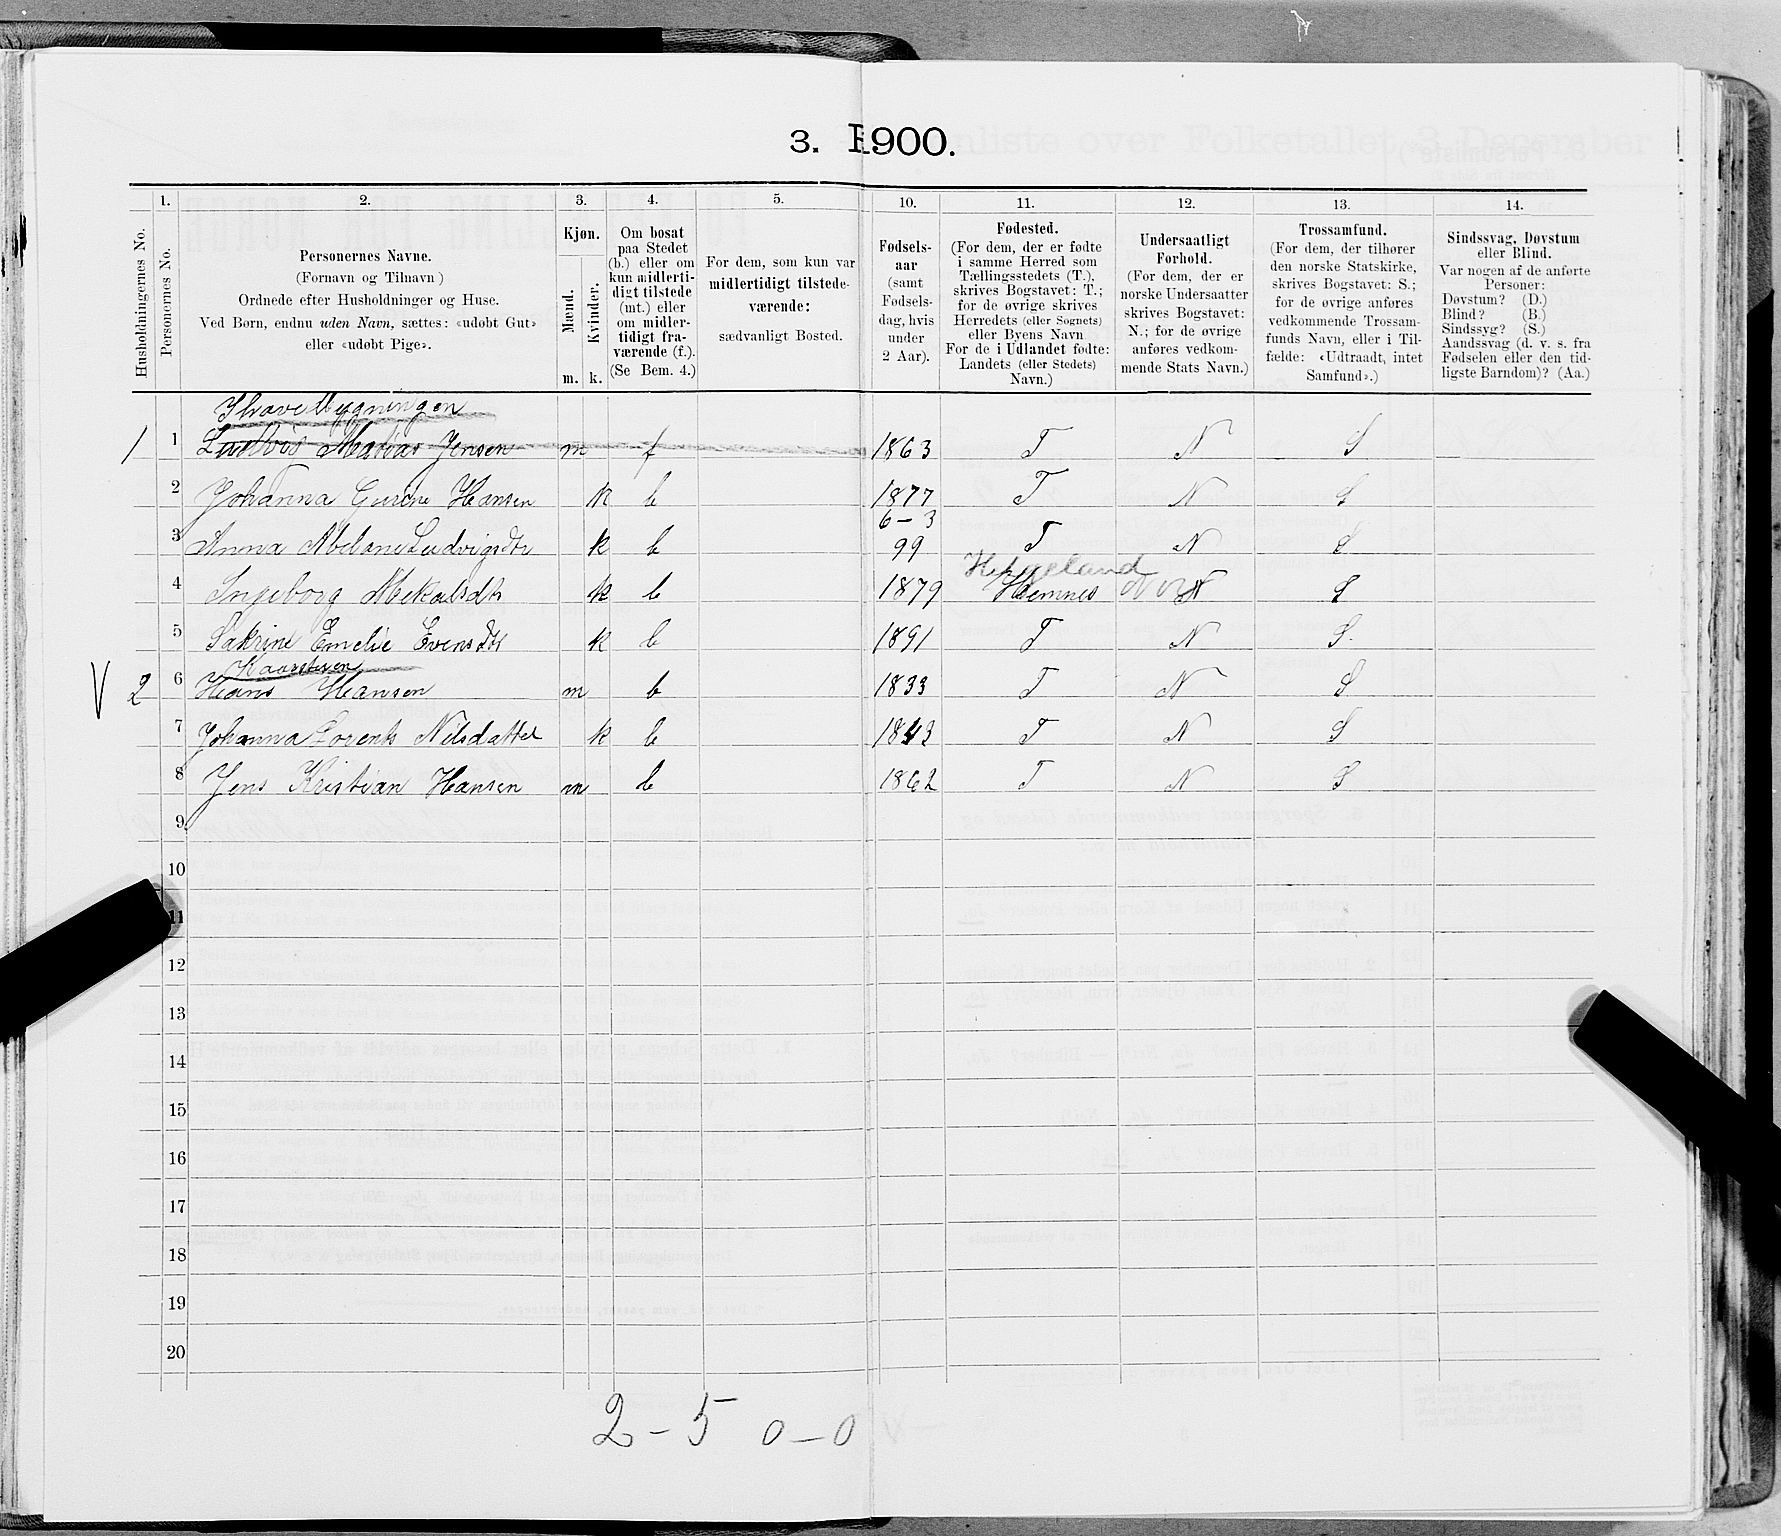 3. 1900.
1. 2. 3. 4. 5. 10. 11. 12. 13. 14.
Husholdningernes No.
Personernes No.
Personernes Navne.
(Fornavn og Tilnavn)
Ordnede efter Husholdninger og Huse.
Ved Børn, endnu uden Navn, sættes: «udøbt Gut»
eller «udøbt Pige».
Kjøn.
Mænd.
Kvinder.
m. k.
Om bosat
paa Stedet
(b.) eller om
kun midlerti-
digt tilstede
(mt.) eller
om midler-
tidigt fra-
værende (f.).
(Se Bem. 4.)
For dem, som kun var
midlertidigt tilstede-
værende:
sædvanligt Bosted.
Fødsels-
aar
(samt
Fødsels-
dag, hvis
under
2 Aar).
Fødested.
(For dem, der er fødte
i samme Herred som
Tællingsstedets (T.),
skrives Bogstavet: T.;
for de øvrige skrives
Herredets (eller Sognets)
eller Byens Navn
For de i Udlandet fødte:
Landets (eller Stedets)
Navn.)
Undersaatligt
Forhold.
(For dem, der er
norske Undersaatter
skrives Bogstavet:
N.; for de øvrige
anføres vedkom-
mende Stats Navn.)
Trossamfund.
(For dem, der tilhører
den norske Statskirke,
skrives Bogstavet: S.;
for de øvrige anføres
vedkommende Trossam-
funds Navn, eller i Til-
fælde: «Udtraadt, intet
Samfund».)
Sindssvag, Døvstum
eller Blind.
Var nogen af de anførte
Personer:
Døvstum? (D.)
Blind? (B.)
Sindssyg? (S.)
Aandssvag (d. v. s. fra
Fødselen eller den tid-
ligste Barndom)? (Aa.)
1 1 Ludvig Matias Jensen m f 1863 T N S
2 Johanna Gurine Hansen k b 1877 T N S
6-3
3 Anna Abelone Ludvigsdtr k b 99 T N S
Helgeland
4 Ingeborg Mekalsdtr k b 1879 Hemnes N S
5 Sakrine Emelie Evensdtr k b 1891 T N S.
V 2 6 Hans Hansen m b 1833 T N S
7 Johanna Lorents Nilsdatter k b 1843 T N S
8 Jens Kristian Hansen m b 1862 T N S
9
10
11
12
13
14
15
16
17
18
19
20
2 - 5 0 - 0